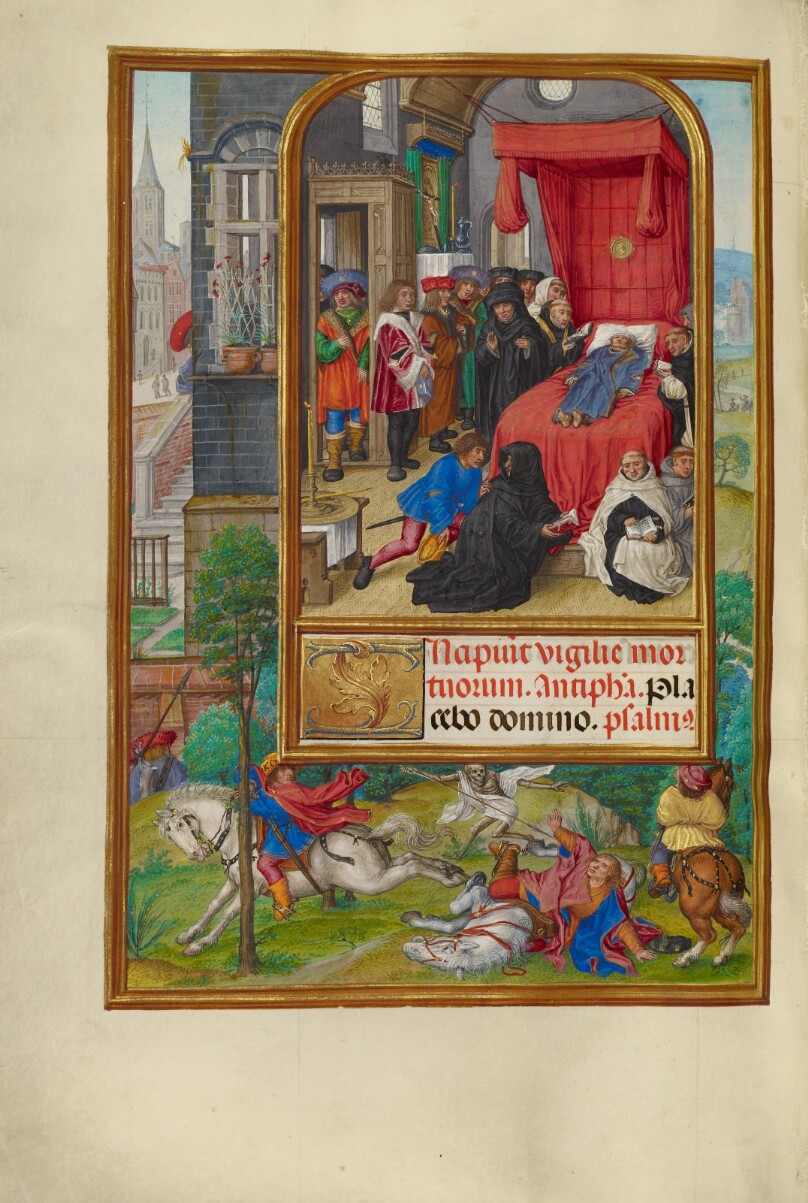 Incipiūt vigilie mor
tuorum. Antiph'a. Pla
cebo domino. psalmꝰ